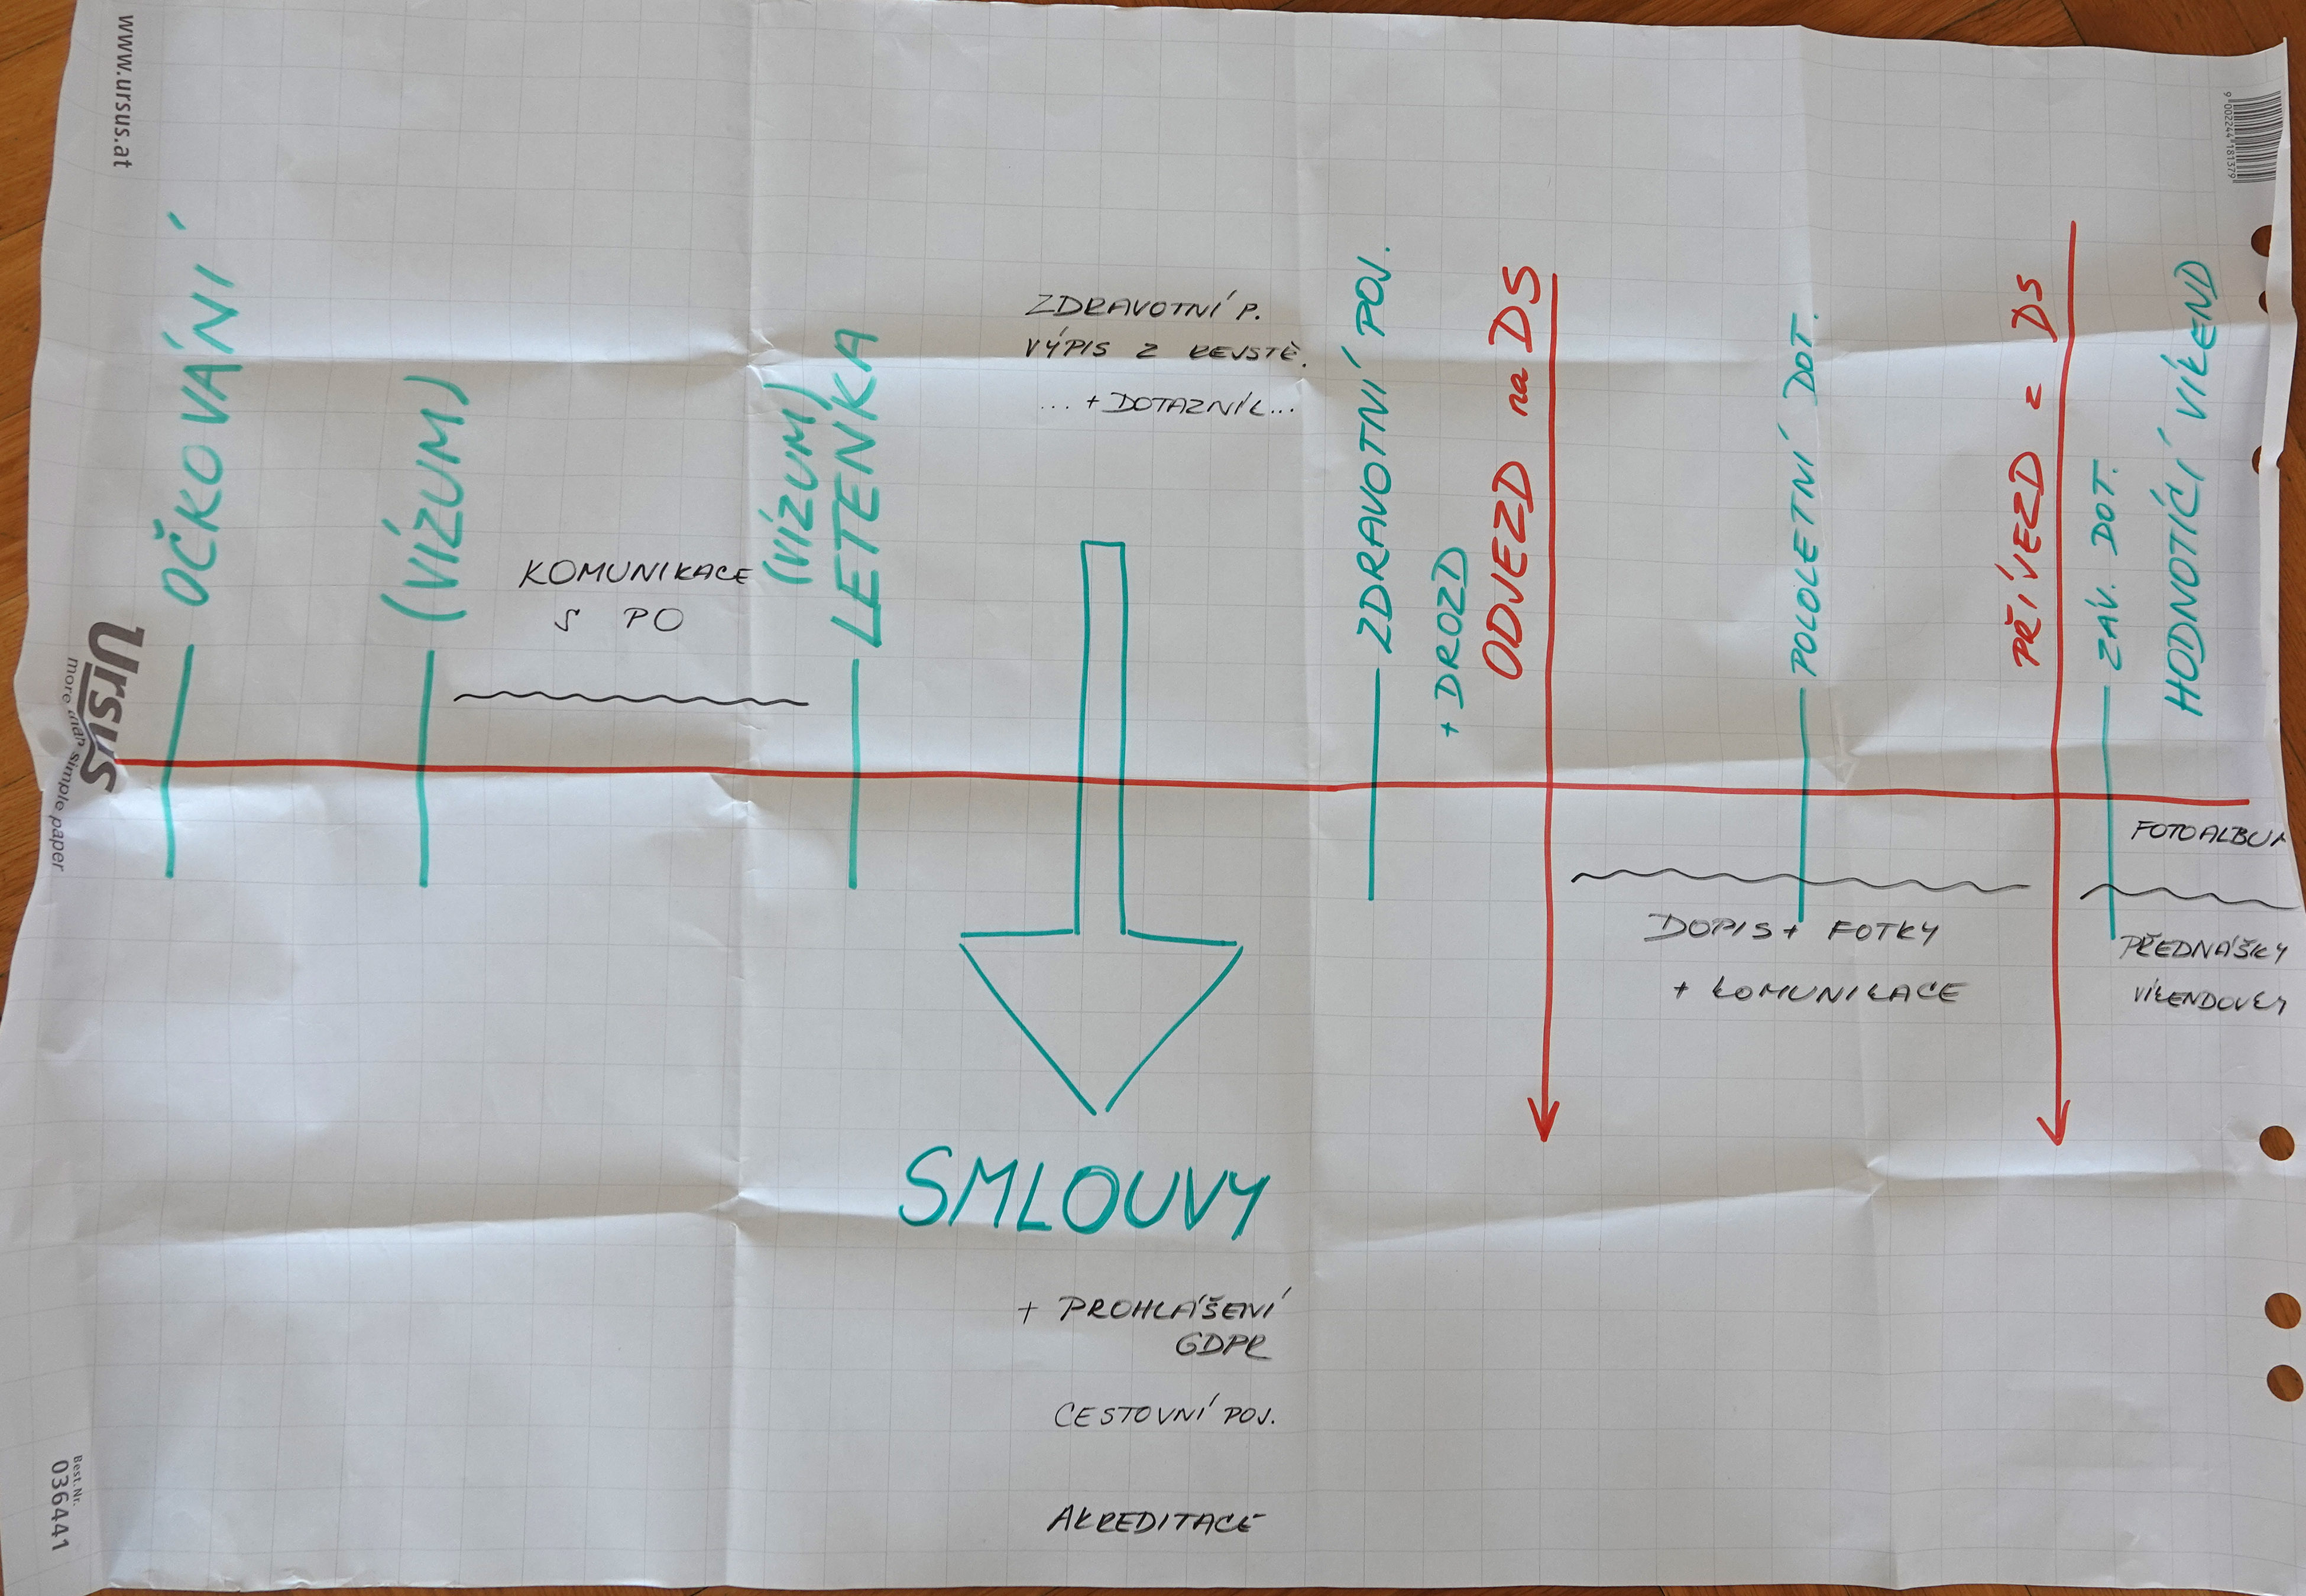 www.ursus.at
Ursus
more than simple paper
Best. Nr.
036441
OČKOVÁNÍ
(VÍZUM)
KOMUNIKACE
S PO
(VÍZUM)
LETENKA
ZDRAVOTNÍ P.
VÝPIS Z REJSTŘ.
... + DOTAZNÍK...
SMLOUVY
+ PROHLÁŠENÍ
GDPR
CESTOVNÍ POJ.
AKREDITACE
ZDRAVOTNÍ POJ.
+ DROZD
ODJEZD na DS
POLOLETNÍ DOT.
DOPIS + FOTKY
+ KOMUNIKACE
PŘÍJEZD z DS
ZÁV. DOT.
HODNOTÍCÍ VÍKEND
FOTOALBUM
PŘEDNÁŠKY
VÍKENDOVKY
9 002244 181379